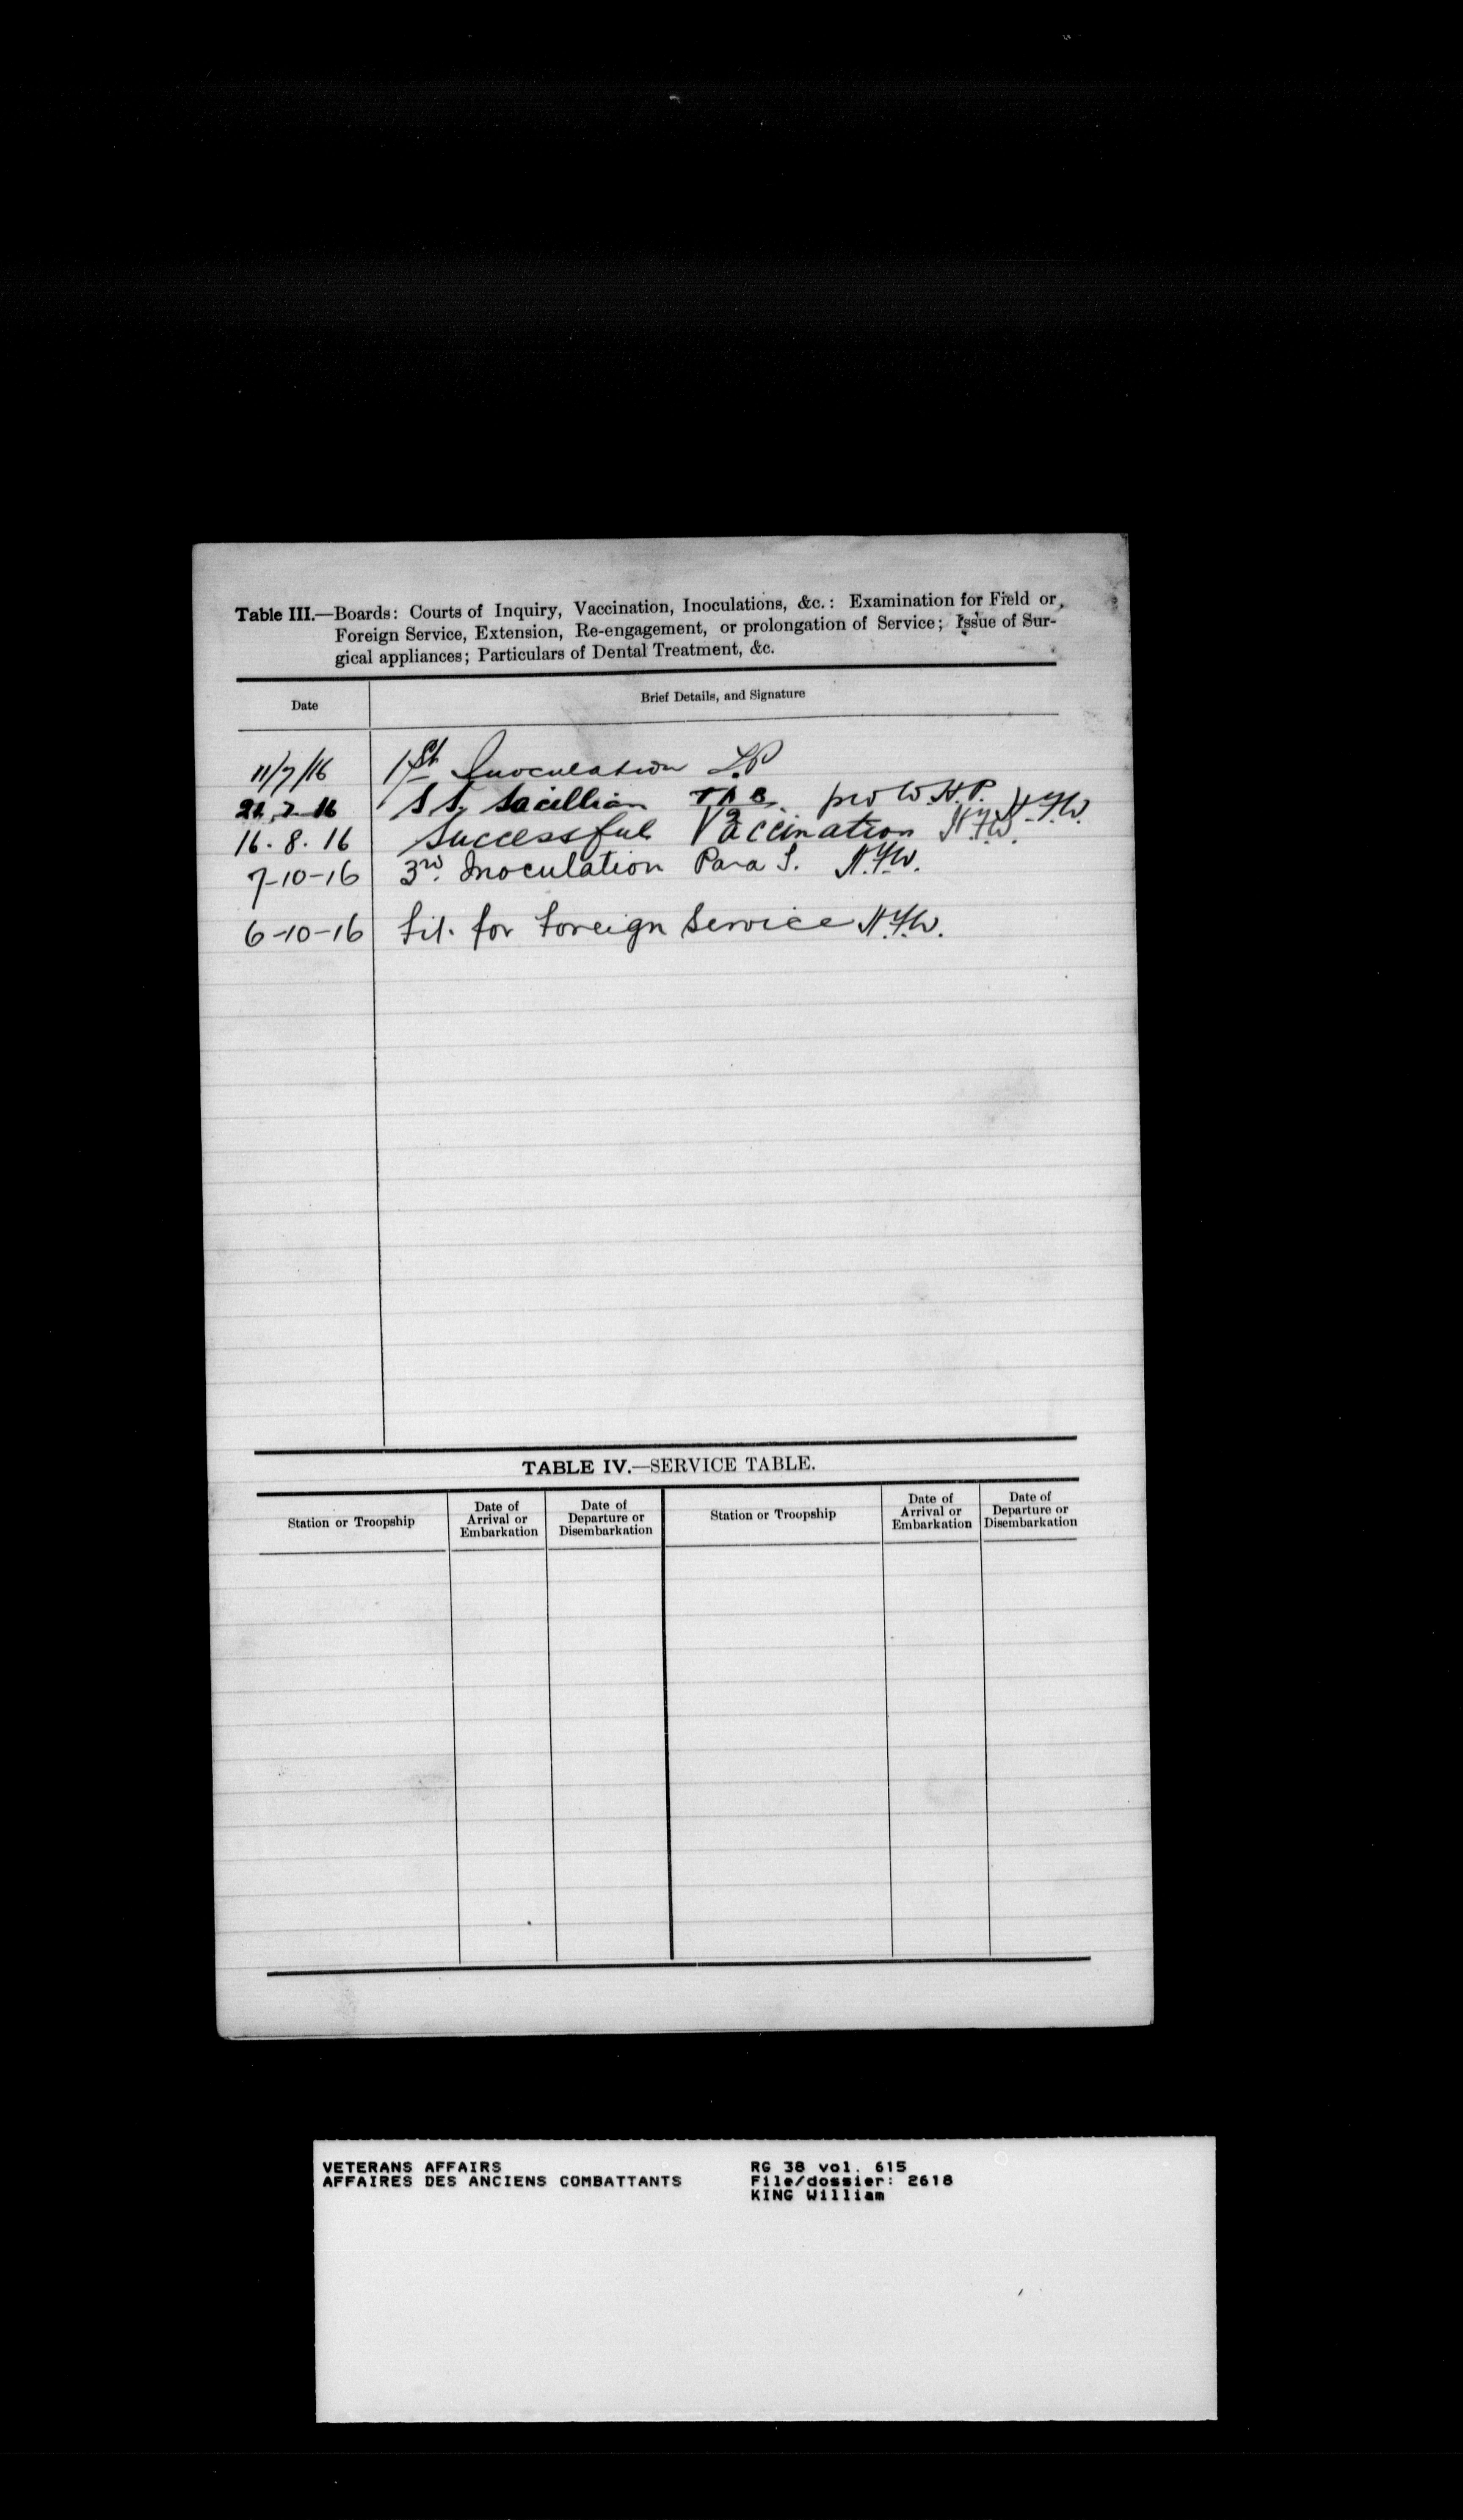 Table III.—Boards: Courts of Inquiry, Vaccination, Inoculations, &c.: Examination for Field or
Foreign Service, Extension, Re-engagement, or prolongation of Service; Issue of Sur-
gical appliances; Particulars of Dental Treatment, &c.
Date Brief Details, and Signature
11/7/16 1st Inoculation L.P
22.7.16 S.S. Sicillian T A B. pro W.H.P. H.F.W.
16.8.16 Successful Vaccination H.F.W.
7-10-16 3rd Inoculation Para S. H.F.W.
6-10-16 Fit. for Foreign Service H.F.W.
TABLE IV.—SERVICE TABLE.
Station or Troopship Date of Arrival or Embarkation Date of Departure or Disembarkation Station or Troopship Date of Arrival or Embarkation Date of Departure or Disembarkation
VETERANS AFFAIRS RG 38 vol. 615
AFFAIRES DES ANCIENS COMBATTANTS File/dossier: 2618
KING William